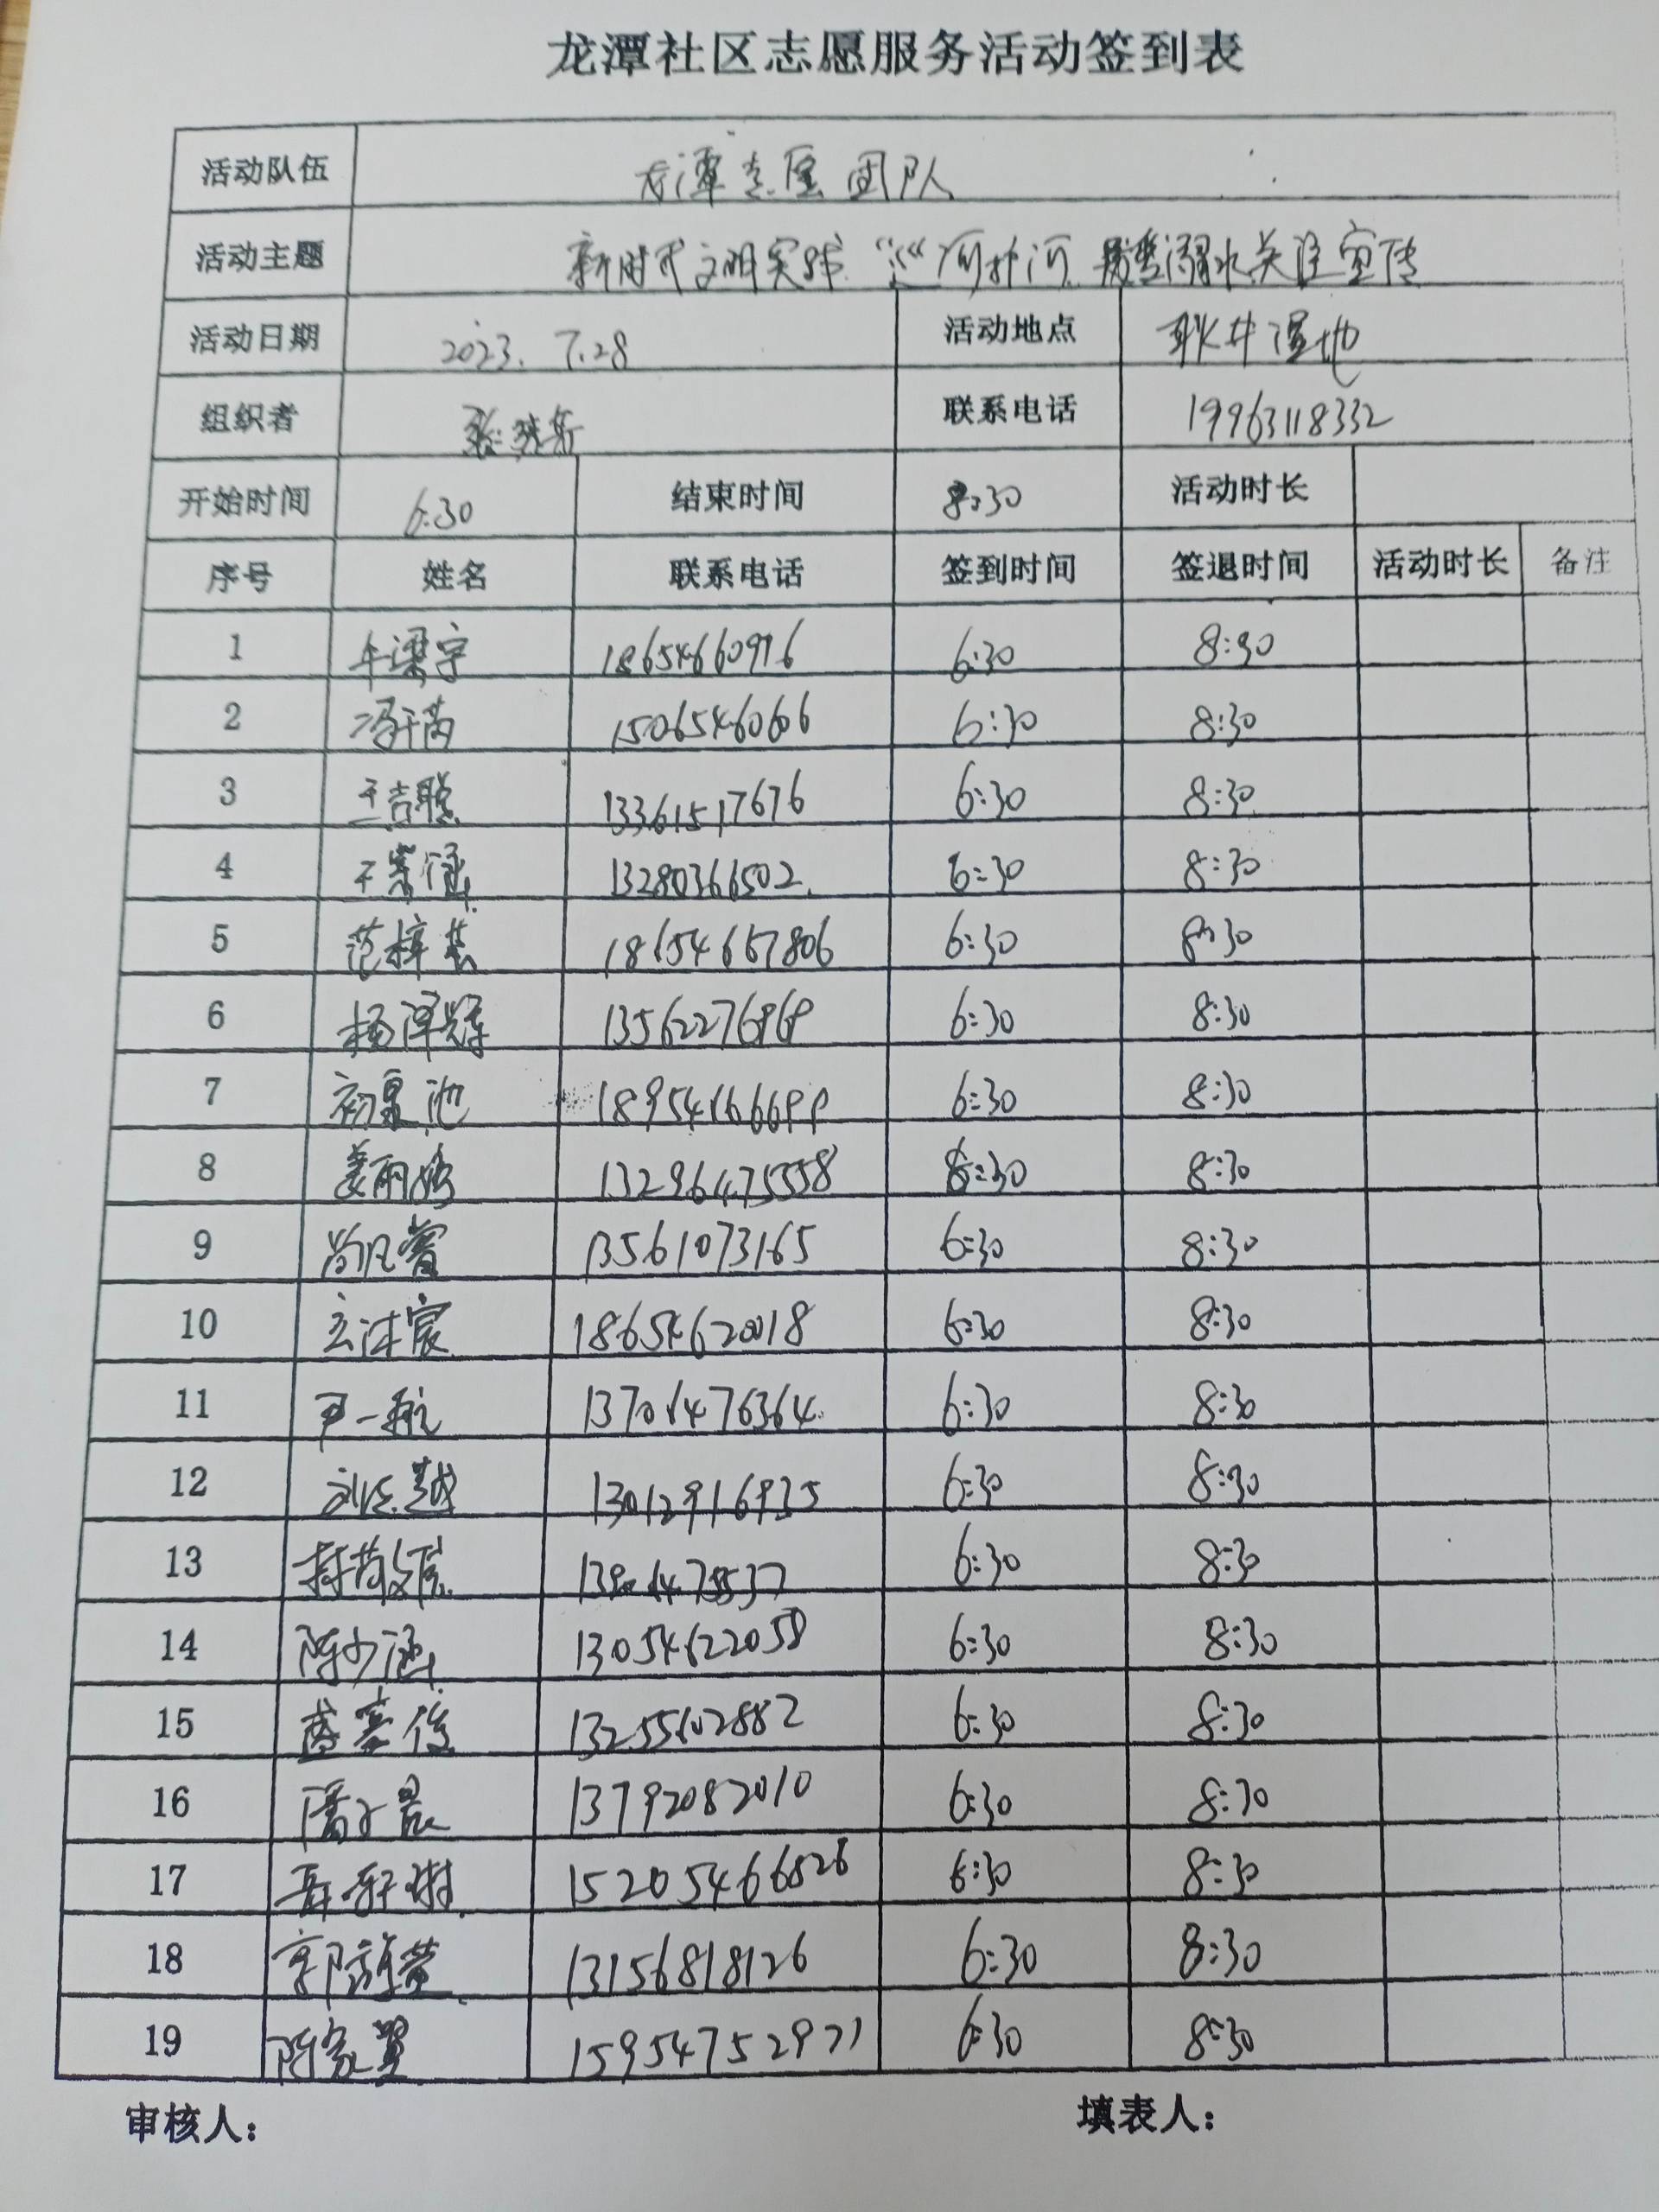 龙潭社区志愿服务活动签到表
活动队伍 龙潭志愿团队
活动主题 新时代文明实践 巡河护河 溺水关注宣传
活动日期 2023.7.28 活动地点 耿井湿地
组织者 联系电话 19963118332
开始时间 6:30 结束时间 8:30 活动时长
序号 姓名 联系电话 签到时间 签退时间 活动时长 备注
1 牛梁宇 18654660976 6:30 8:30
2 冯千芮 15065460606 6:30 8:30
3 王吉聪 13361517676 6:30 8:30
4 13280366502 6:30 8:30
5 范梓芸 18654667806 6:30 8:30
6 杨泽辉 6:30 8:30
7 初泉池 6:30 8:30
8 姜雨婷 13296475558 6:30 8:30
9 尚凡蕾 13561073165 6:30 8:30
10 玄沐宸 18654620018 6:30 8:30
11 尹一航 13706476364 6:30 8:30
12 6:30 8:30
13 6:30 8:30
14 陈少涵 13054622058 6:30 8:30
15 盛豪俊 13255602882 6:30 8:30
16 潘子晨 13792082010 6:30 8:30
17 聂轩树 15205466826 6:30 8:30
18 13156818126 6:30 8:30
19 陈家翼 15954752971 6:30 8:30
审核人： 填表人：